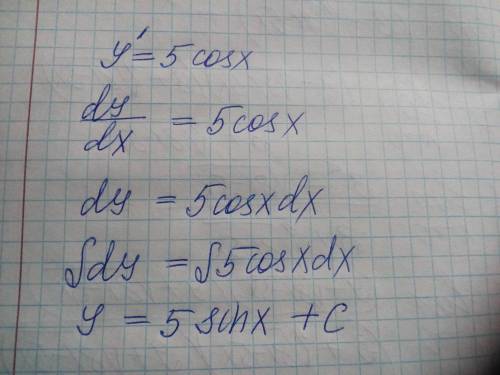 y' = 5 cosx
dy/dx = 5cosx
dy = 5cosxdx
∫dy = ∫5cosxdx
y = 5 sinx + C